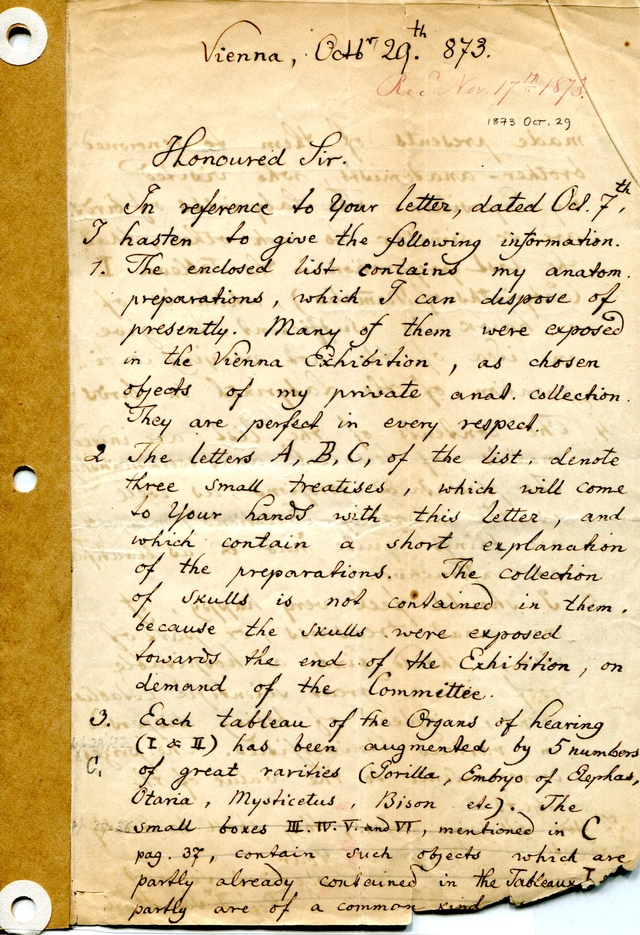 Vienna, Octbr 29.th 873.
Recd Nov. 17th 1873.
1873 Oct. 29
Honoured Sir.
In reference to Your letter, dated Oct. 7th,
I hasten to give the following information.
1. The enclosed list contains my anatom.
preparations, which I can dispose of
presently. Many of them were exposed
in the Vienna Exhibition, as chosen
objects of my private anat. collection.
They are perfect in every respect.
2 The letters A, B, C, of the list, denote
three small treatises, which will come
to Your hands with this letter, and
which contain a short explanation
of the preparations. The collection
of skulls is not contained in them,
because the skulls were exposed
towards the end of the Exhibition, on
demand of the Committee.
3. Each tableau of the Organs of hearing
(I & II) has been augmented by 5 numbers
C. of great rarities (Gorilla, Embryo of Elephas,
Otaria, Mysticetus, Bison etc). The
small boxes III. IV. V. and VI, mentioned in C
pag. 37, contain such objects which are
partly already contained in the Tableaux I
partly are of a common kind